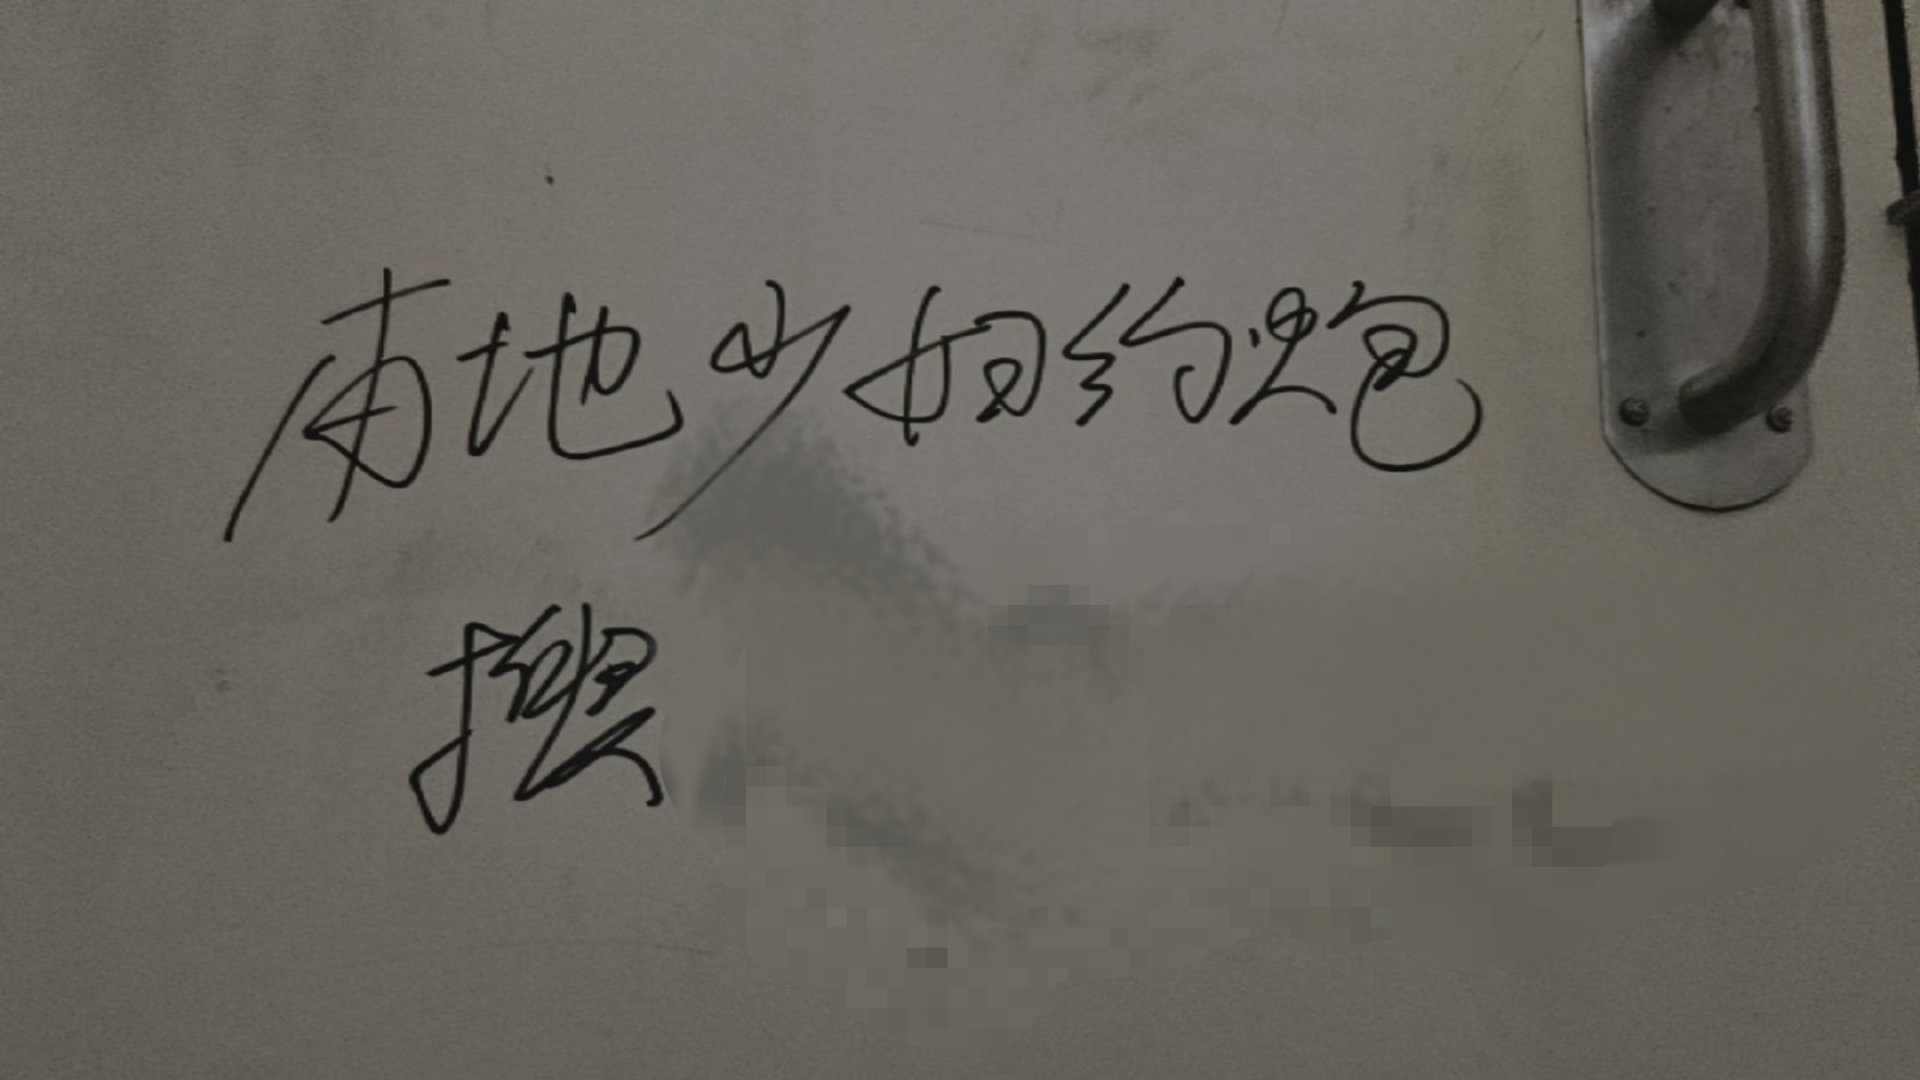 本地少妇约炮